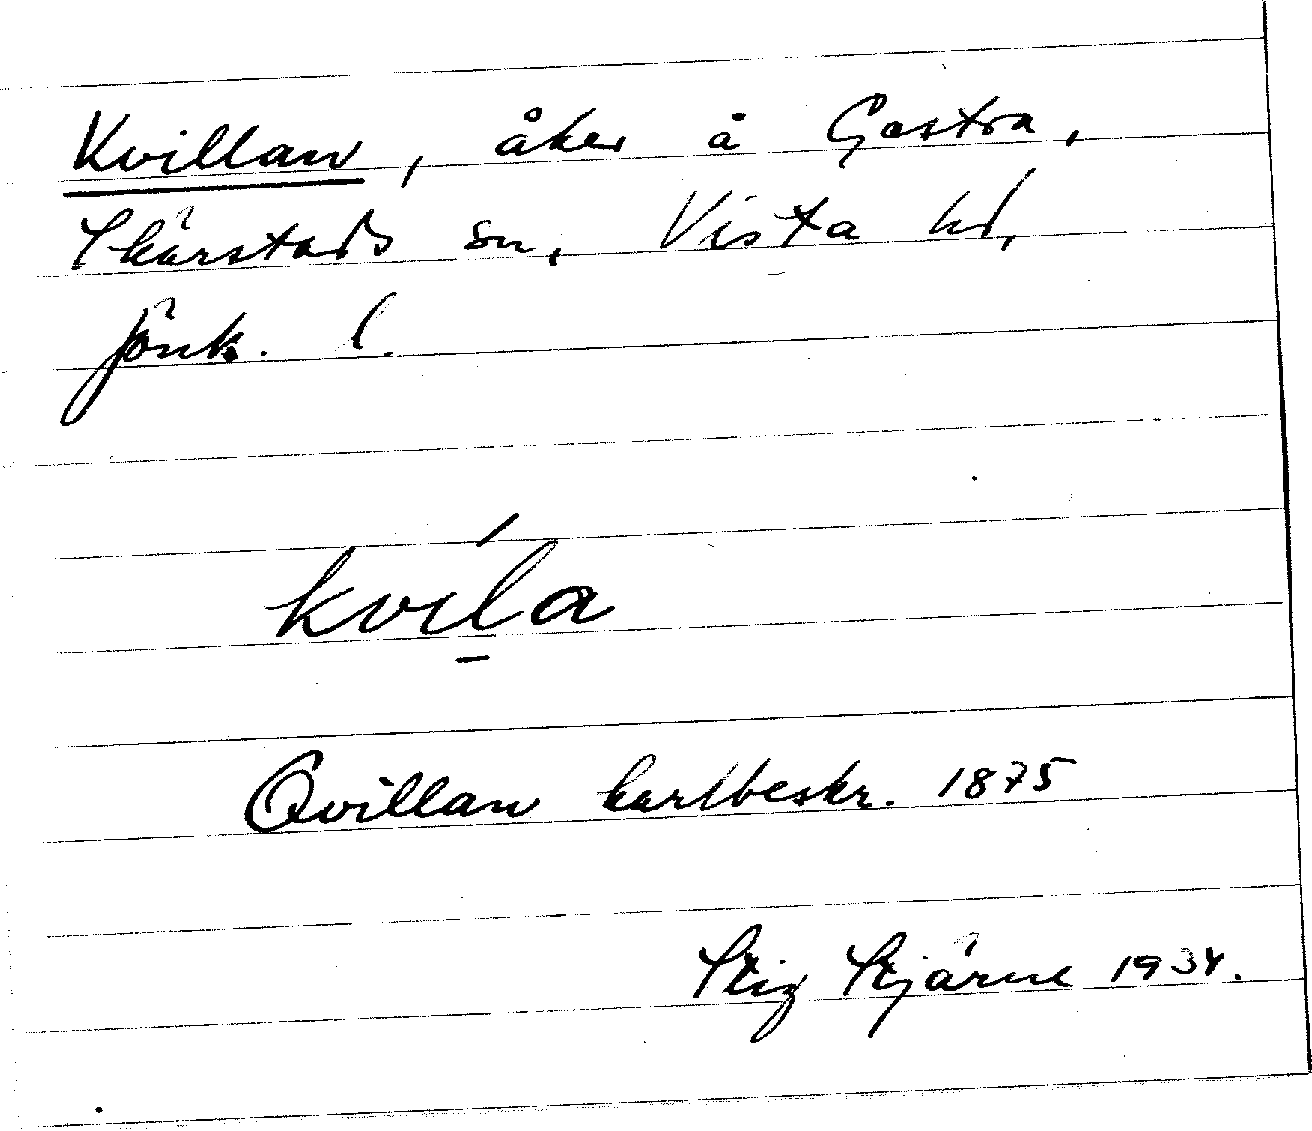 Kvillan, åker å Gastra,
Skärstads sn, Vista hd,
Jönk. l.
kvíl̲a
Qvillan kartbeskr. 1875
Stig Stjärne 1934.